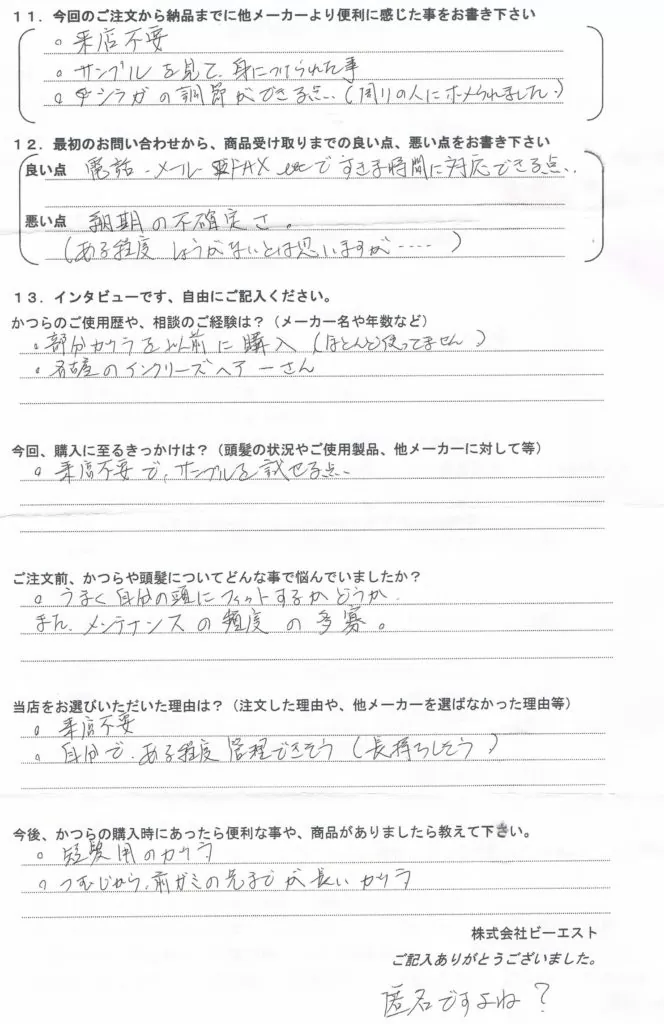 １１．今回のご注文から納品までに他メーカーより便利に感じた事をお書き下さい
。来店不要
。サンプルを見て、身につけられた事
。シラガの調節ができる点、(周りの人にホメられました。)
１２．最初のお問い合わせから、商品受け取りまでの良い点、悪い点をお書き下さい
良い点 電話・メール FAX etcですきま時間に対応できる点、
悪い点 納期の不確定さ。
(ある程度しょうがないとは思いますが‥‥)
１３．インタビューです、自由にご記入ください。
かつらのご使用歴や、相談のご経験は？（メーカー名や年数など）
。部分カツラを以前に購入 (ほとんど使ってません。)
。名古屋のインクリーズヘアーさん
今回、購入に至るきっかけは？（頭髪の状況やご使用製品、他メーカーに対して等）
。来店不要で、サンプルを試せる点、
ご注文前、かつらや頭髪についてどんな事で悩んでいましたか？
。うまく自分の頭にフィットするかどうか、
また、メンテナンスの頻度の多寡。
当店をお選びいただいた理由は？（注文した理由や、他メーカーを選ばなかった理由等）
。来店不要
。自分で、ある程度管理できそう (長持ちしそう)
今後、かつらの購入時にあったら便利な事や、商品がありましたら教えて下さい。
。短髪用のカツラ
。つむじから、前ガミの先までが長いカツラ
株式会社ビーエスト
ご記入ありがとうございました。
匿名ですよね？